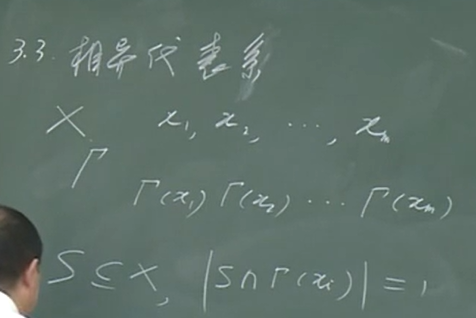 3.3. 相异代表系
X. x₁, x₂, ⋯, xₙ
Γ
Γ(x₁) Γ(x₂) ⋯ Γ(xₙ)
S ⊆ X, |S ∩ Γ(xᵢ)| = 1